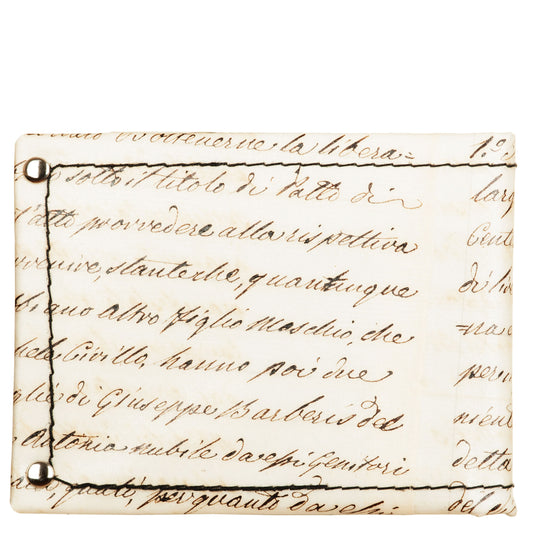 ottenerne la libera=
sotto il titolo di Patto di
provvedere alla rispettiva
stanteche, quantunque
altro figlio Maschio, che
Civillo, hanno poi due
di Giuseppe Barberis del
Antonia nubile da essi Genitori
quali, per quanto da essi
1.o
larg
Cente
di liv
=na
per
nien
detta
del